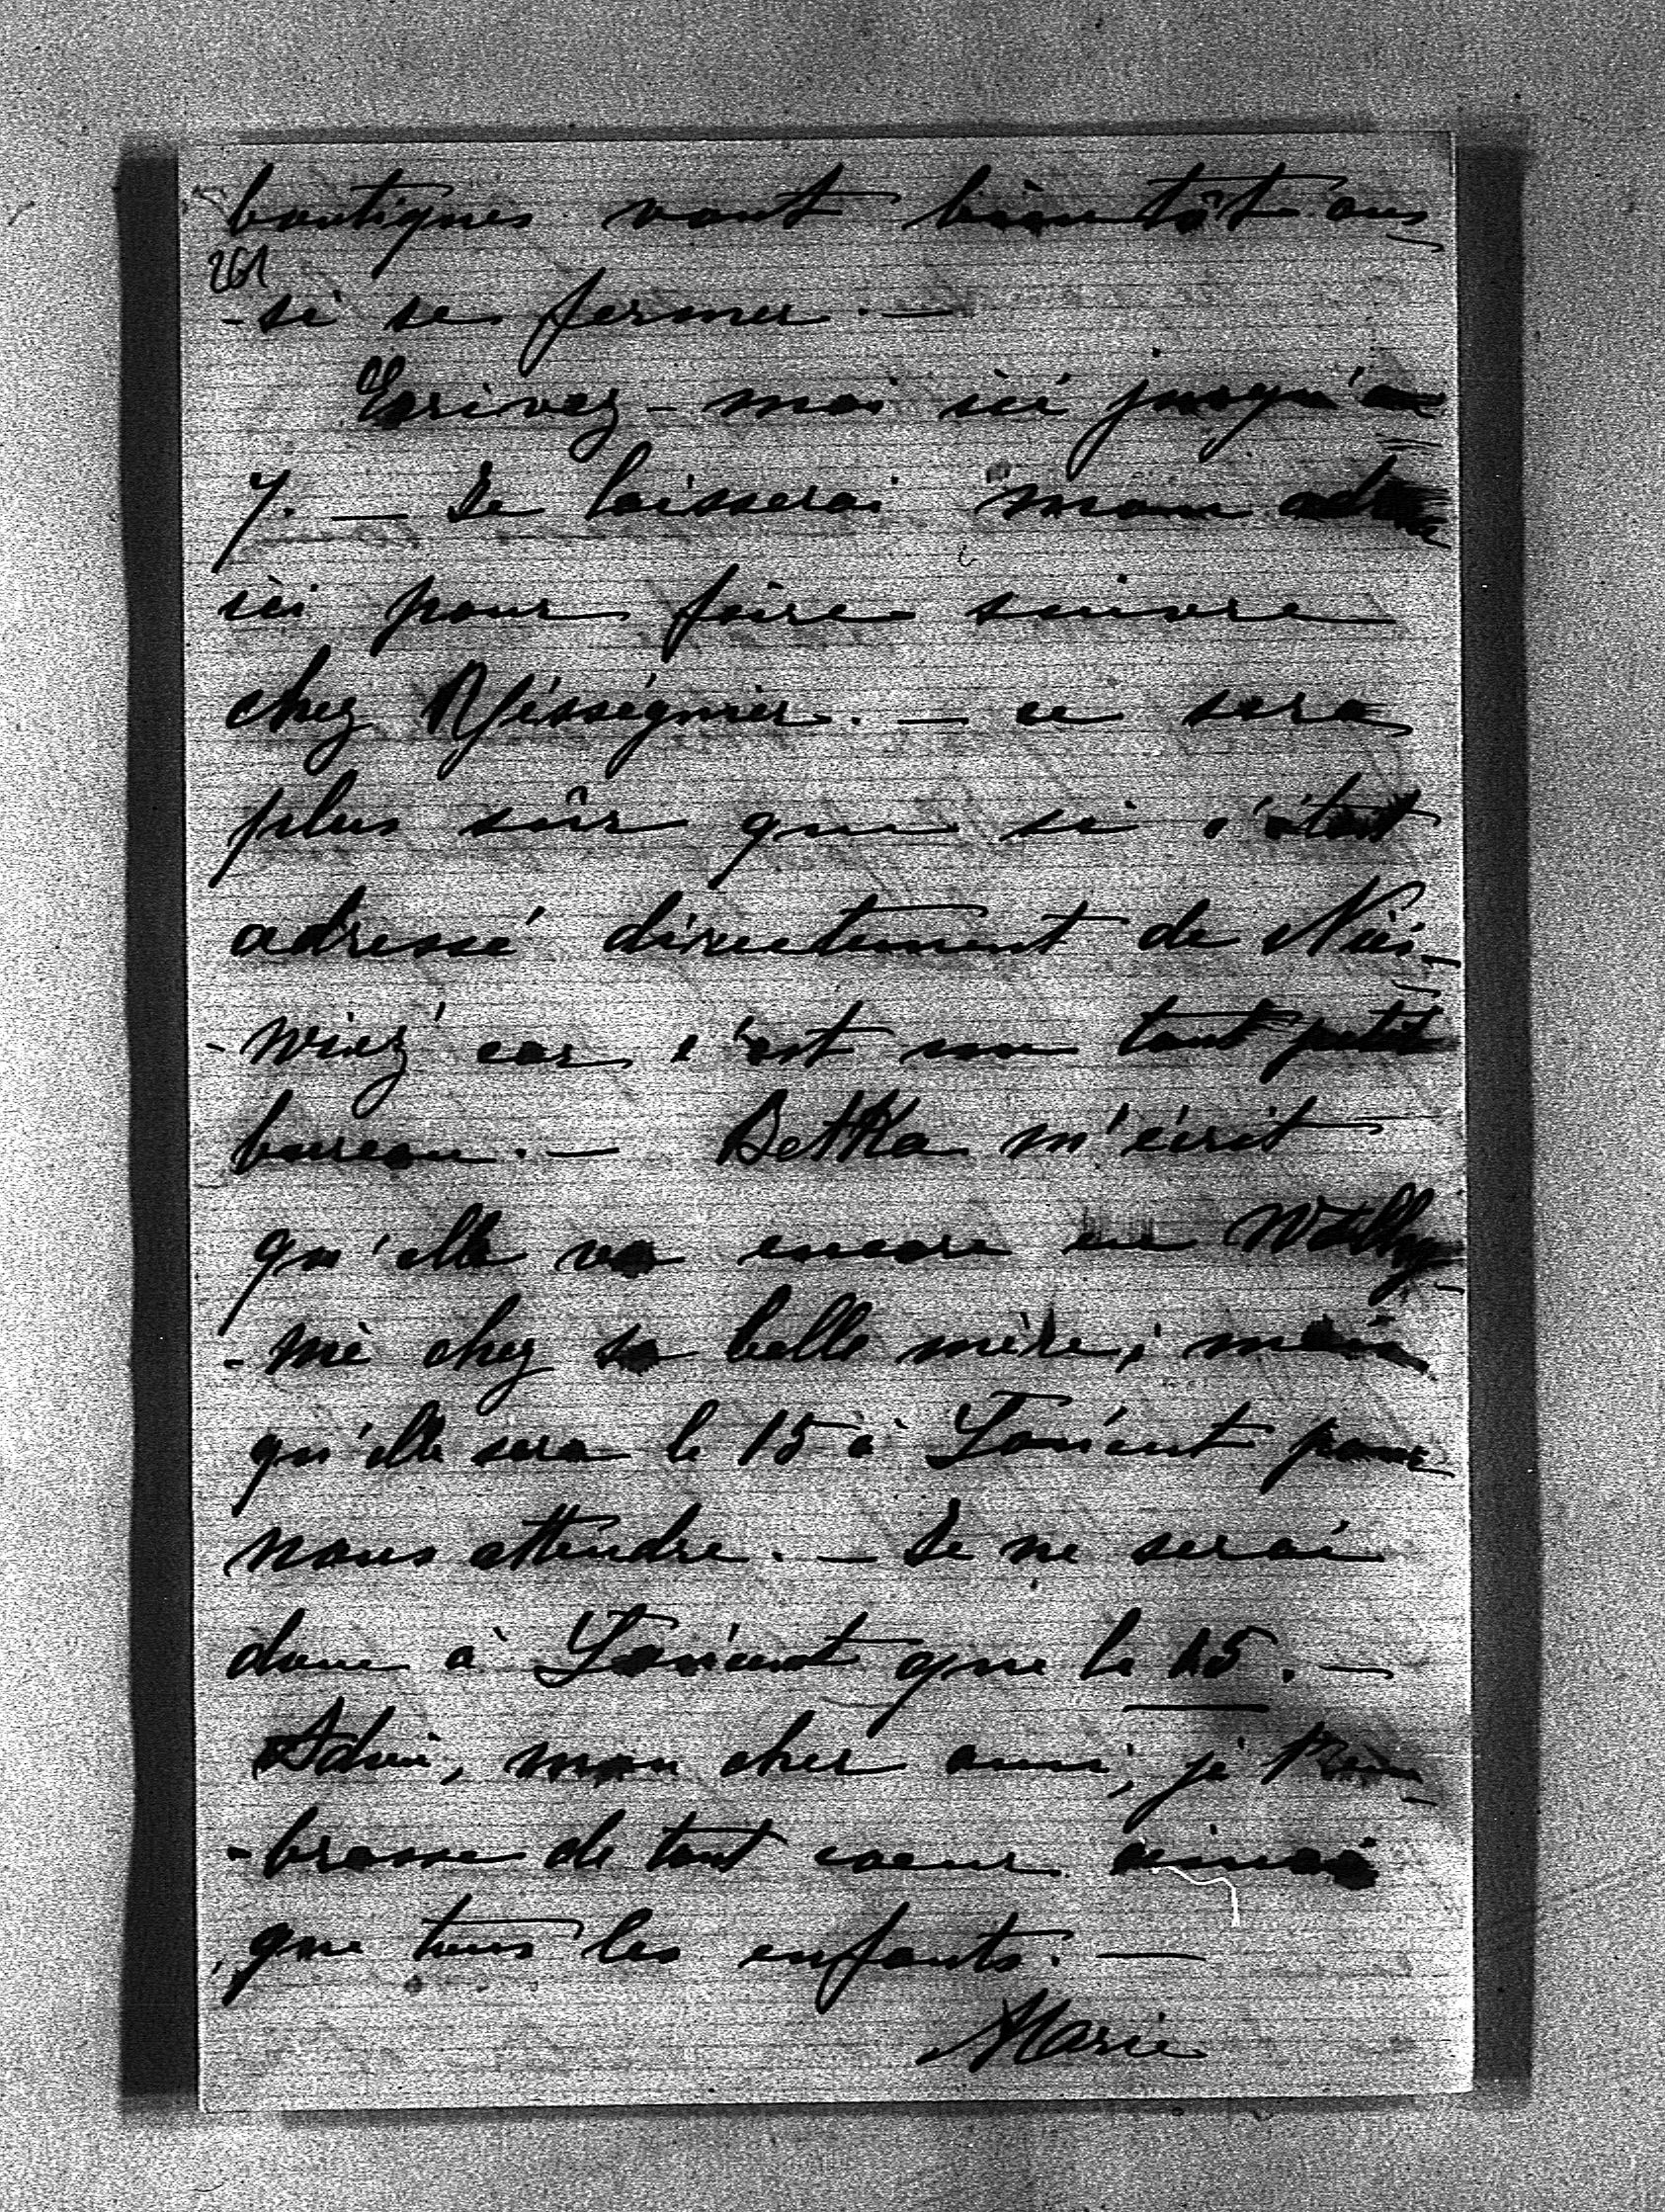 boutiques vont bientôt aus
261
-si se fermer. —
Ecrivez-moi ici jusqu'au
7. — Je laisserai mon adresse
ici pour faire suivre
chez — ce sera
plus sûr que si c'était
adressé directement de Nieś-
-wież car c'est un tout petit
bureau. — Betka m'écrit
qu'elle va encore en Wolhy-
-nie chez sa belle mère, mais
qu'elle sera le 15 à Łańcut pour
nous attendre. — Je ne serai
donc à Łańcut que le 15. —
Adieu, mon cher ami, je t'em-
-brasse de tout coeur ainsi
que tous les enfants. —
Marie